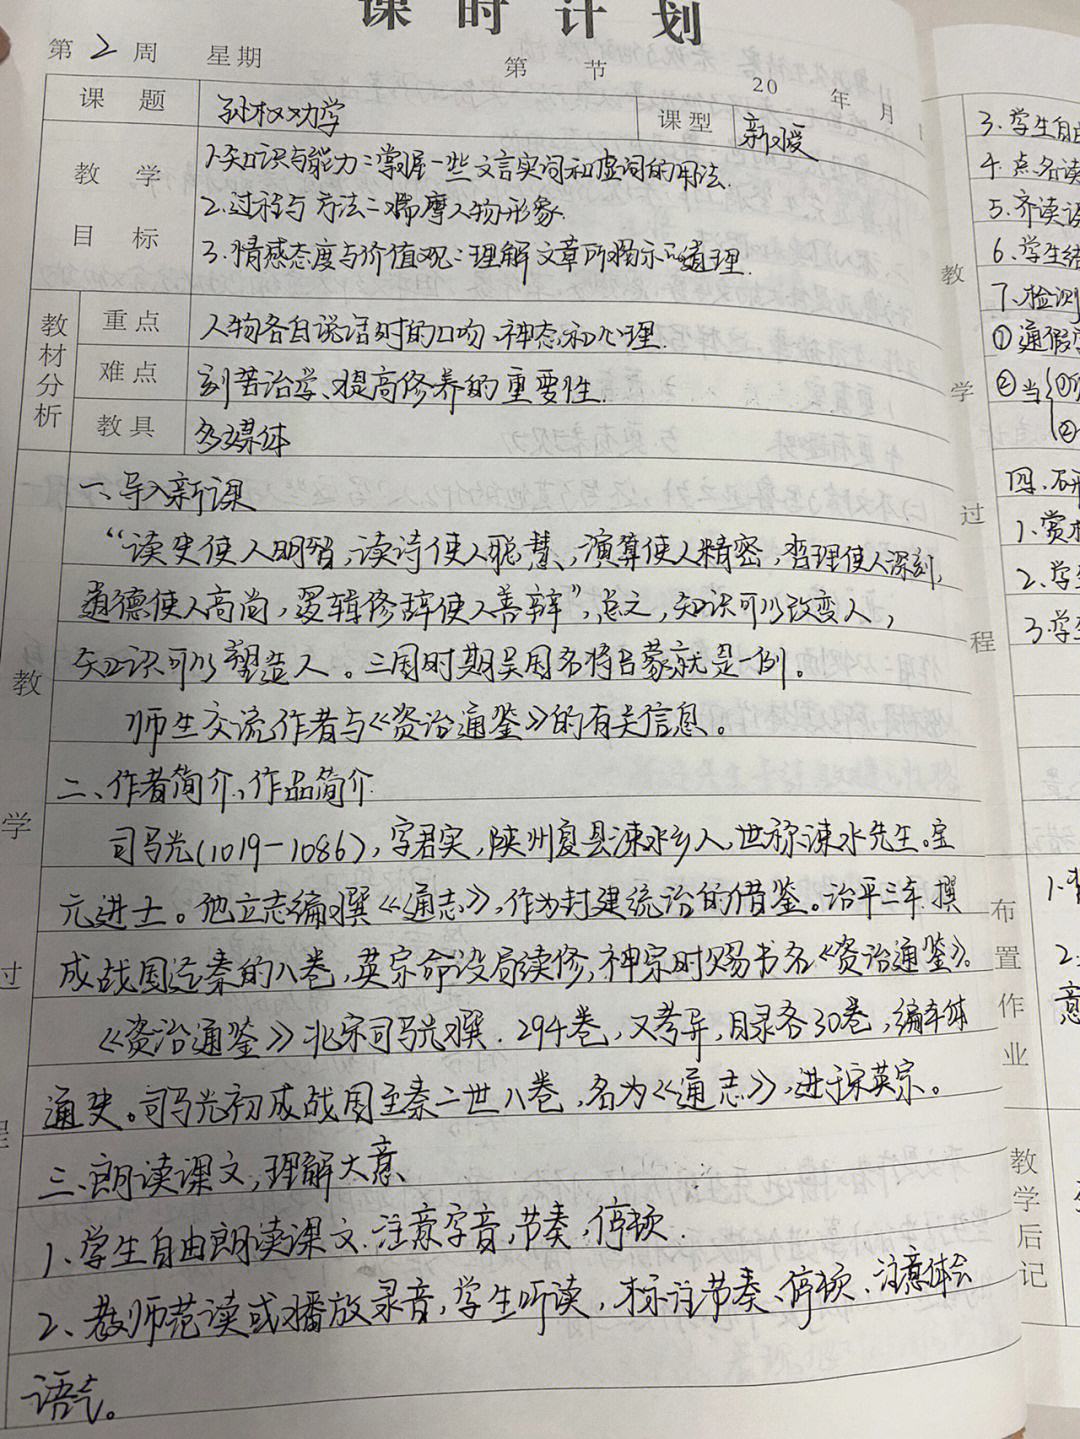 课时计划
第2周 星期 第 节 20 年 月
课题 孙权劝学 课型 新授
教学目标
1.知识与能力:掌握一些文言实词和虚词的用法.
2.过程与方法:揣摩人物形象.
3.情感态度与价值观:理解文章所揭示的道理.
教材分析
重点 人物各自说话时的口吻、神态和心理.
难点 刻苦治学、提高修养的重要性.
教具 多媒体
教学过程
一、导入新课
“读史使人明智,读诗使人聪慧,演算使人精密,哲理使人深刻,
道德使人高尚,逻辑修辞使人善辩”,总之,知识可以改变人,
知识可以塑造人。三国时期吴国名将吕蒙就是一例。
师生交流作者与《资治通鉴》的有关信息。
二、作者简介,作品简介
司马光(1019-1086),字君实,陕州夏县涑水乡人,世称涑水先生。宝
元进士。他立志编撰《通志》,作为封建统治的借鉴。治平三年撰
成战国迄秦的八卷,英宗命设局续修,神宗时赐书名《资治通鉴》。
《资治通鉴》北宋司马光撰.294卷,又考异,目录各30卷,编年体
通史。司马光初成战国至秦二世八卷,名为《通志》,进于宋英宗。
三、朗读课文,理解大意
1、学生自由朗读课文.注意字音,节奏,停顿.
2、教师范读或播放录音,学生听读,标注节奏、停顿、注意体会
语气。
教学过程
3.学生自由
4.点名读
5.齐读课
6.学生结
7、检测
①通假字
②当
四、研
1、赏
2、学生
3、学生
布置作业
1、
2、
意
教学后记